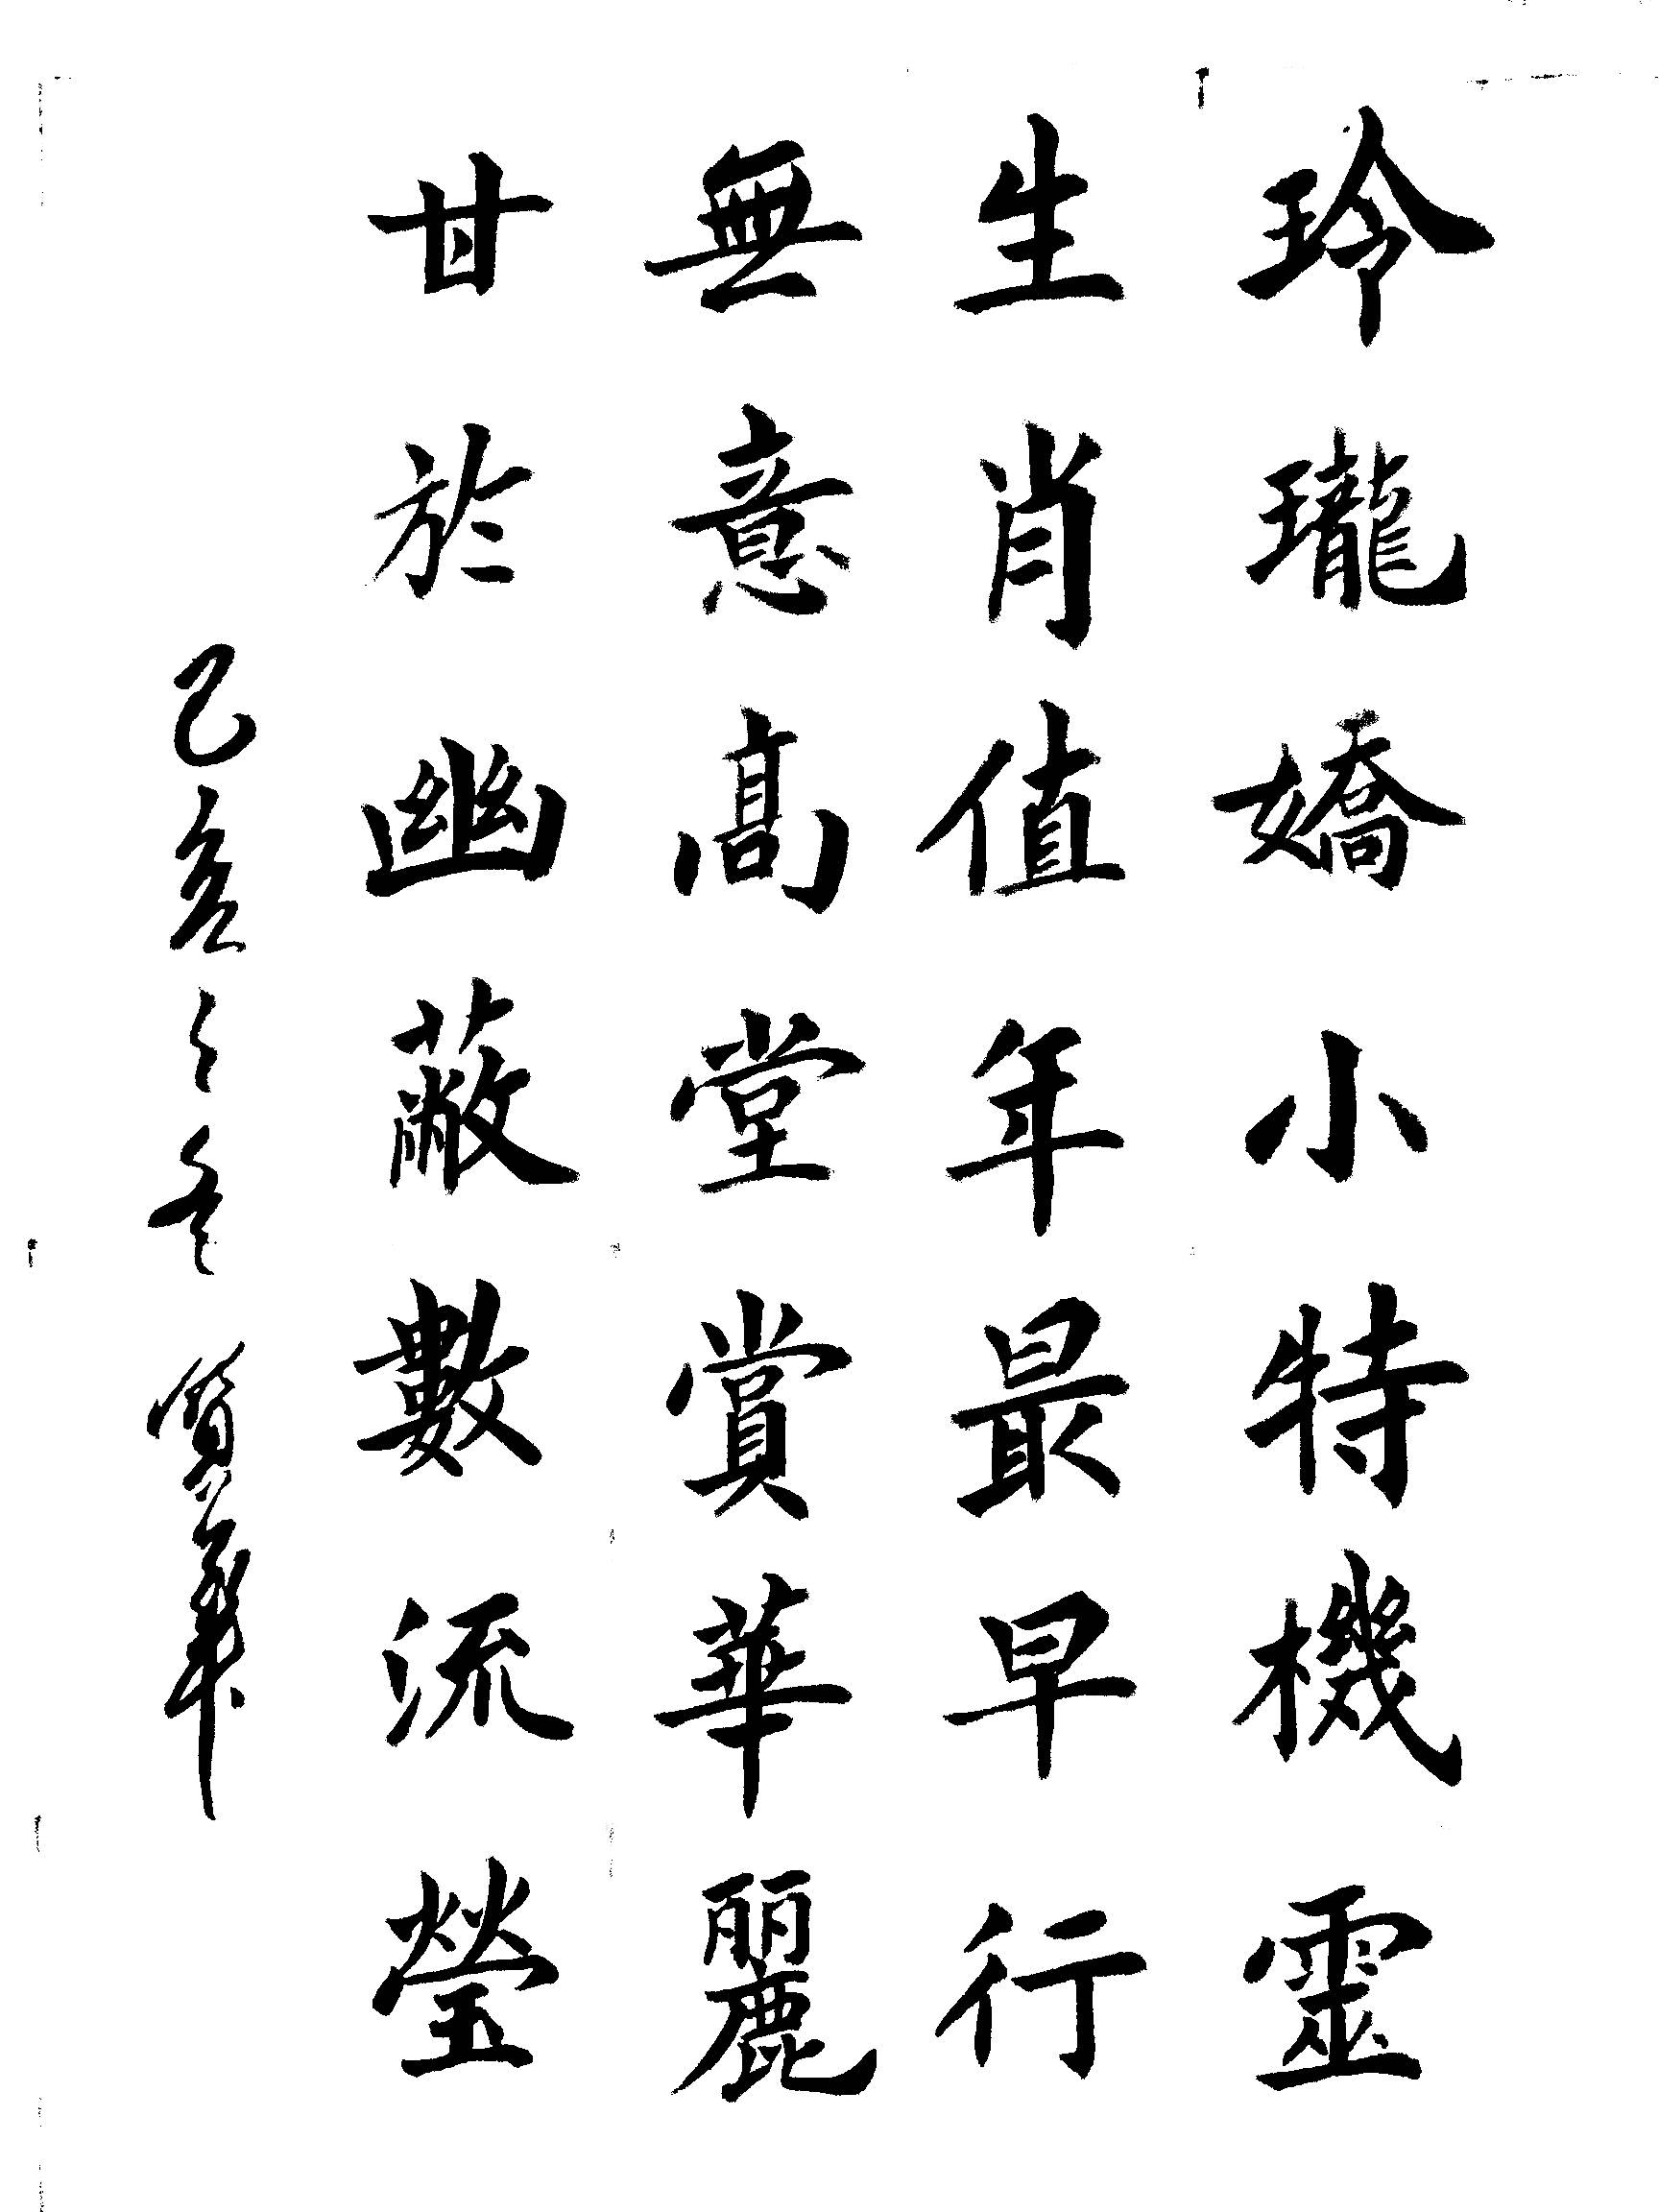 玲瓏嬌小特機靈
生肖值年最早行
無意高堂賞華麗
甘於幽蔽數流瑩
己亥之冬